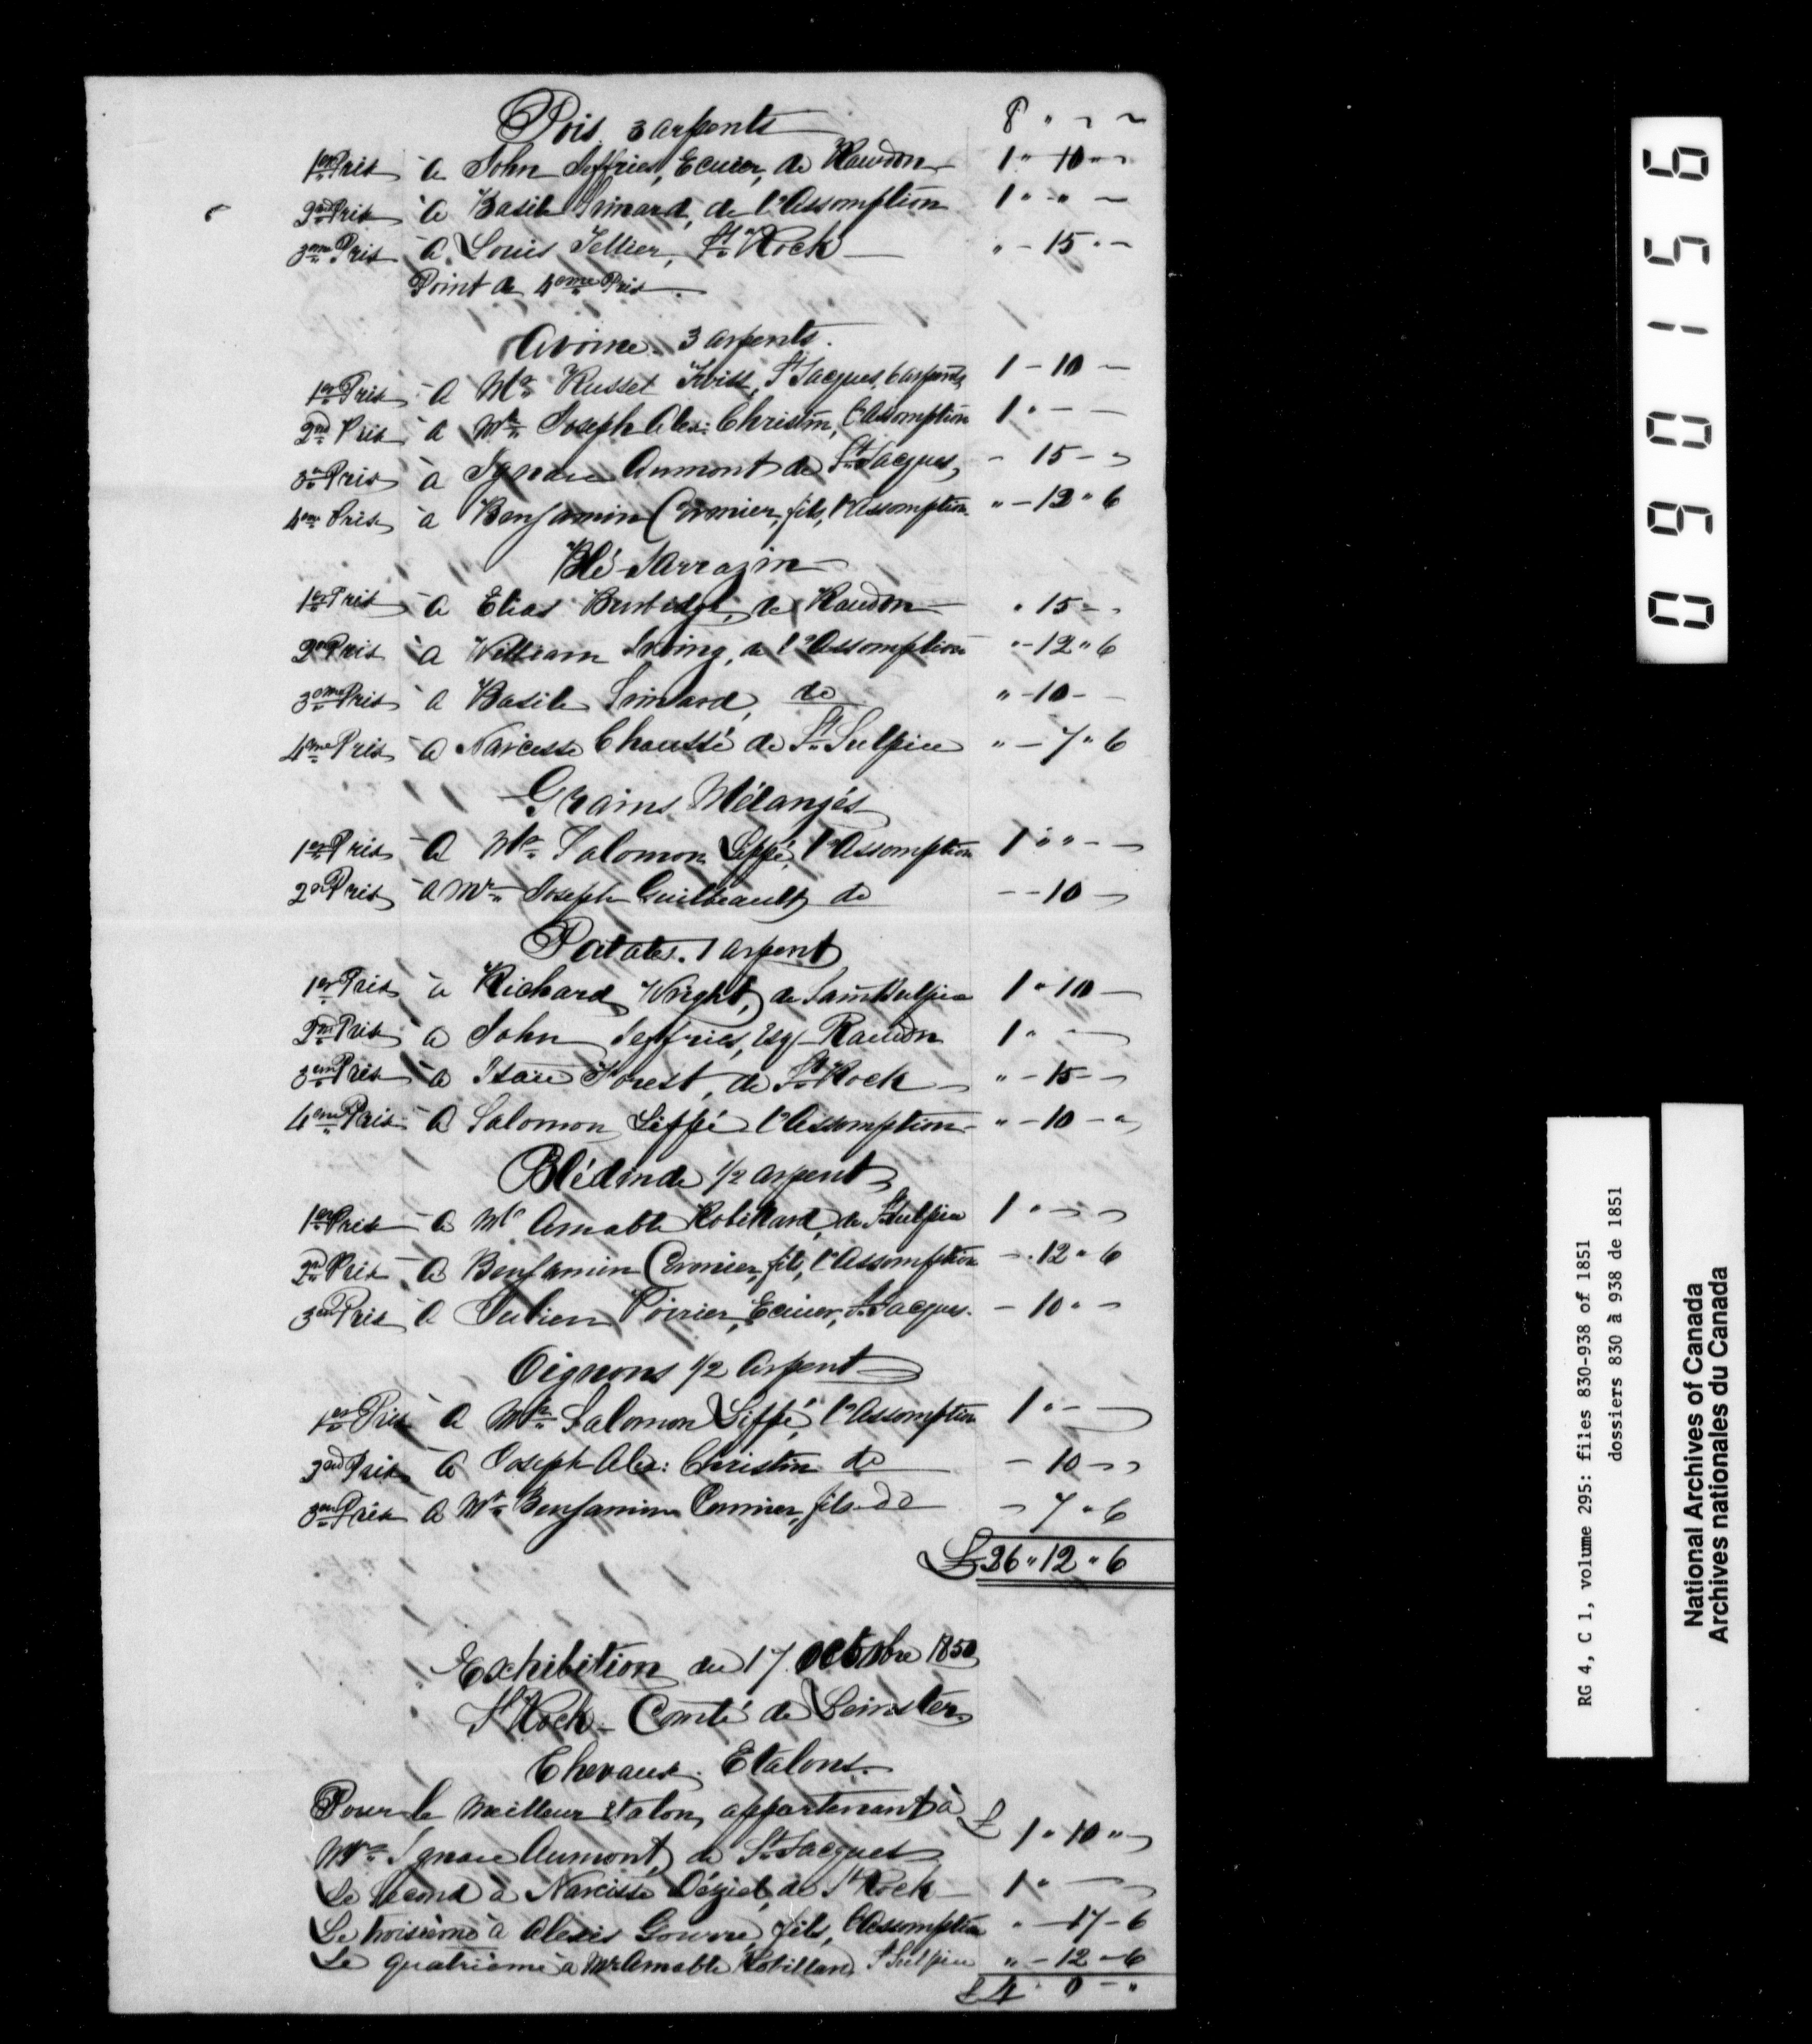 Pois 3 arpents 8 " - -
1er Prix à John Jeffries, Ecuier, de Rawdon 1 " 10 " -
2nd Prix à Basile Simard, de l'Assomption 1 " - " -
3eme Prix à Louis Tellier, St Rock " - 15 " -
Point de 4eme Prix.
Avoine 3 arpents.
1er Prix à Mr Russel St Jacques, 6 arpents 1 - 10 -
2nd Prix à Mr Joseph Alex: Christin, l'Assomption 1 " - -
3e Prix à Ignace Aumont de St Jacques, - 15 - "
4me Prix à Benjamin Cormier, fils, l'Assomption " - 12 " 6
Blé-Sarrazin
1er Prix à Elias Burbidge, de Rawdon " 15 - "
2nd Prix à William Irving, de l'Assomption " - 12 " 6
3eme Prix à Basile Simard, do " - 10 - -
4me Prix à Narcisse Chaussé de St Sulpice " - 7 " 6
Grains Mélangés
1er Prix à Mr Salomon Lippé, l'Assomption 1 " " - -
2nd Prix à Mr Joseph Guilbeault do - - 10 -
Patates. 1 arpent
1er Prix à Richard Wright, de Saint Sulpice 1 " 10 -
2nd Prix à John Jeffries, Esqr Rawdon 1 " - -
3eme Prix à Isaïe Forest, de St Rock " - 15 - -
4eme Prix à Salomon Liffé l'Assomption " - 10 - "
Blédinde 1/2 arpent
1er Prix à Mr Amable Robillard, de St Sulpice 1 " - -
2nd Prix à Benjamin Cormier, fils, l'Assomption - . 12 " 6
3eme Prix à Julien Poirier, Ecuier, St Jacques. - 10 " -
Oignons 1/2 Arpent
1er Prix à Mr Salomon Liffé, l'Assomption 1 " - -
2nd Prix à Joseph Alex: Christin do - 10 - -
3eme Prix à Mr Benjamin Cormier, fils do - 7 " 6
£26 " 12 " 6
Exhibition du 17 Octobre 1850
St Rock - Comté de Leinster
Chevaux. Etalons.
Pour le meilleur étalon, appartenant à
Mr Ignace Aumont, de St Jacques £ 1 " 10 " -
Le Second à Narcisse Déziel, de St Rock 1 " - -
Le troisième à Alexis Gouvre, fils, l'Assomption " - 17 - 6
Le quatrième à Mr Amable Robillard St Sulpice " - 12 - 6
£ 4 " 0 - "
090156
RG 4, C 1, volume 295: files 830-938 of 1851
dossiers 830 à 938 de 1851
National Archives of Canada
Archives nationales du Canada